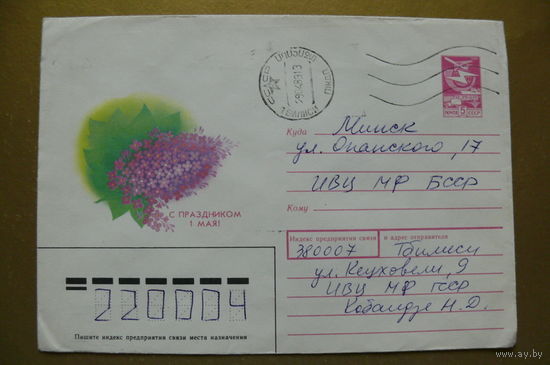 ТБИЛИСИ
ПОЧТА 5 СССР
Куда Минск
ул. Опанского, 17
ИВЦ МФ БССР
Кому
С ПРАЗДНИКОМ
1 МАЯ!
Индекс предприятия связи и адрес отправителя
380007 Тбилиси
ул. Кецховели, 9
ИВЦ МФ ГССР
Кобаидзе Н.Д.
220004
Пишите индекс предприятия связи места назначения
www.ay.by